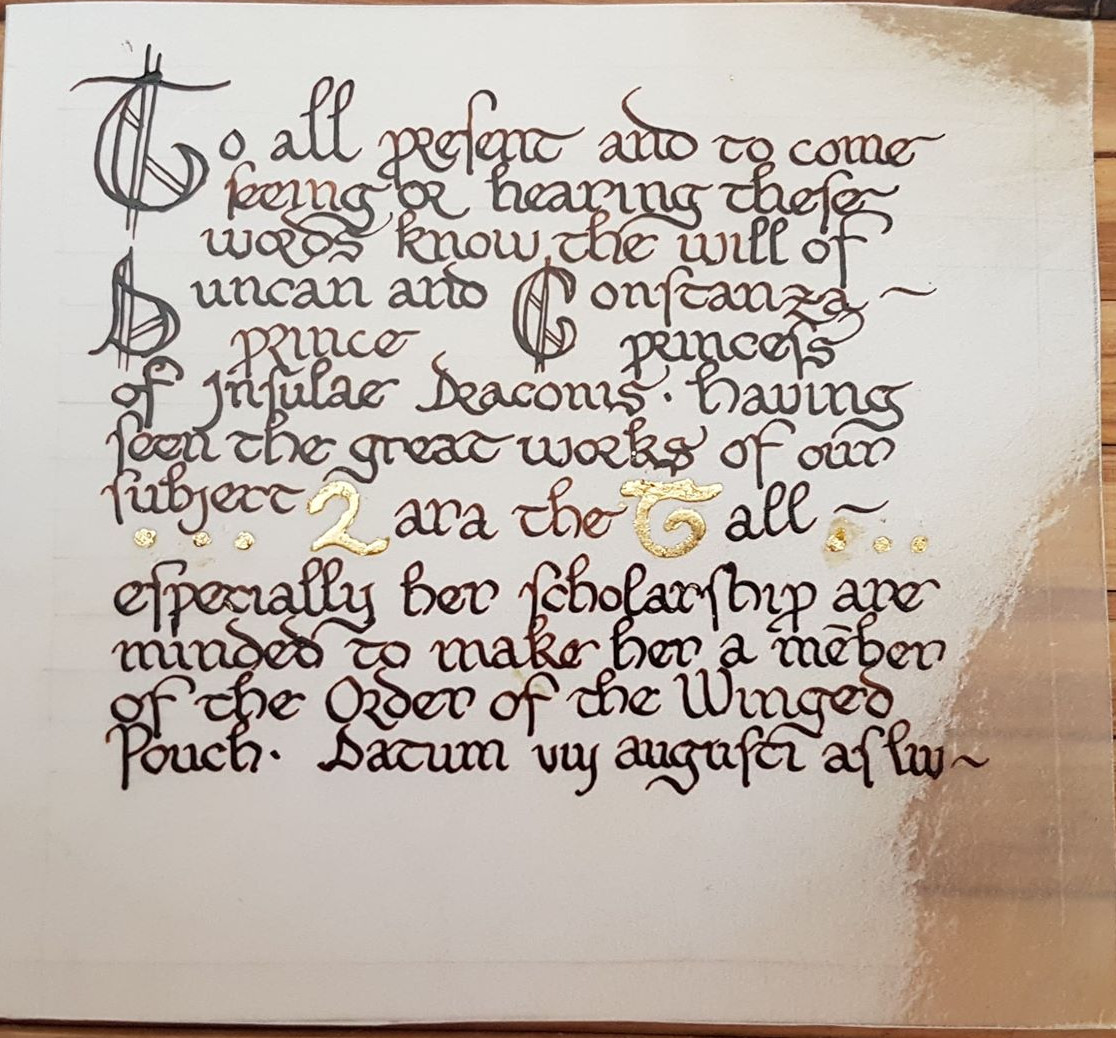 To all preſent and to come
ſeeing or hearing theſe
words know the will of
Duncan and Conſtanza ~
prince princeſs
of Inſulae Draconis · having
ſeen the great works of our
ſubject Zara the Tall ~
eſpecially her ſcholarſhip are
minded to make her a mēber
of the Order of the Winged
Pouch · Datum viij auguſti aſ liv ~